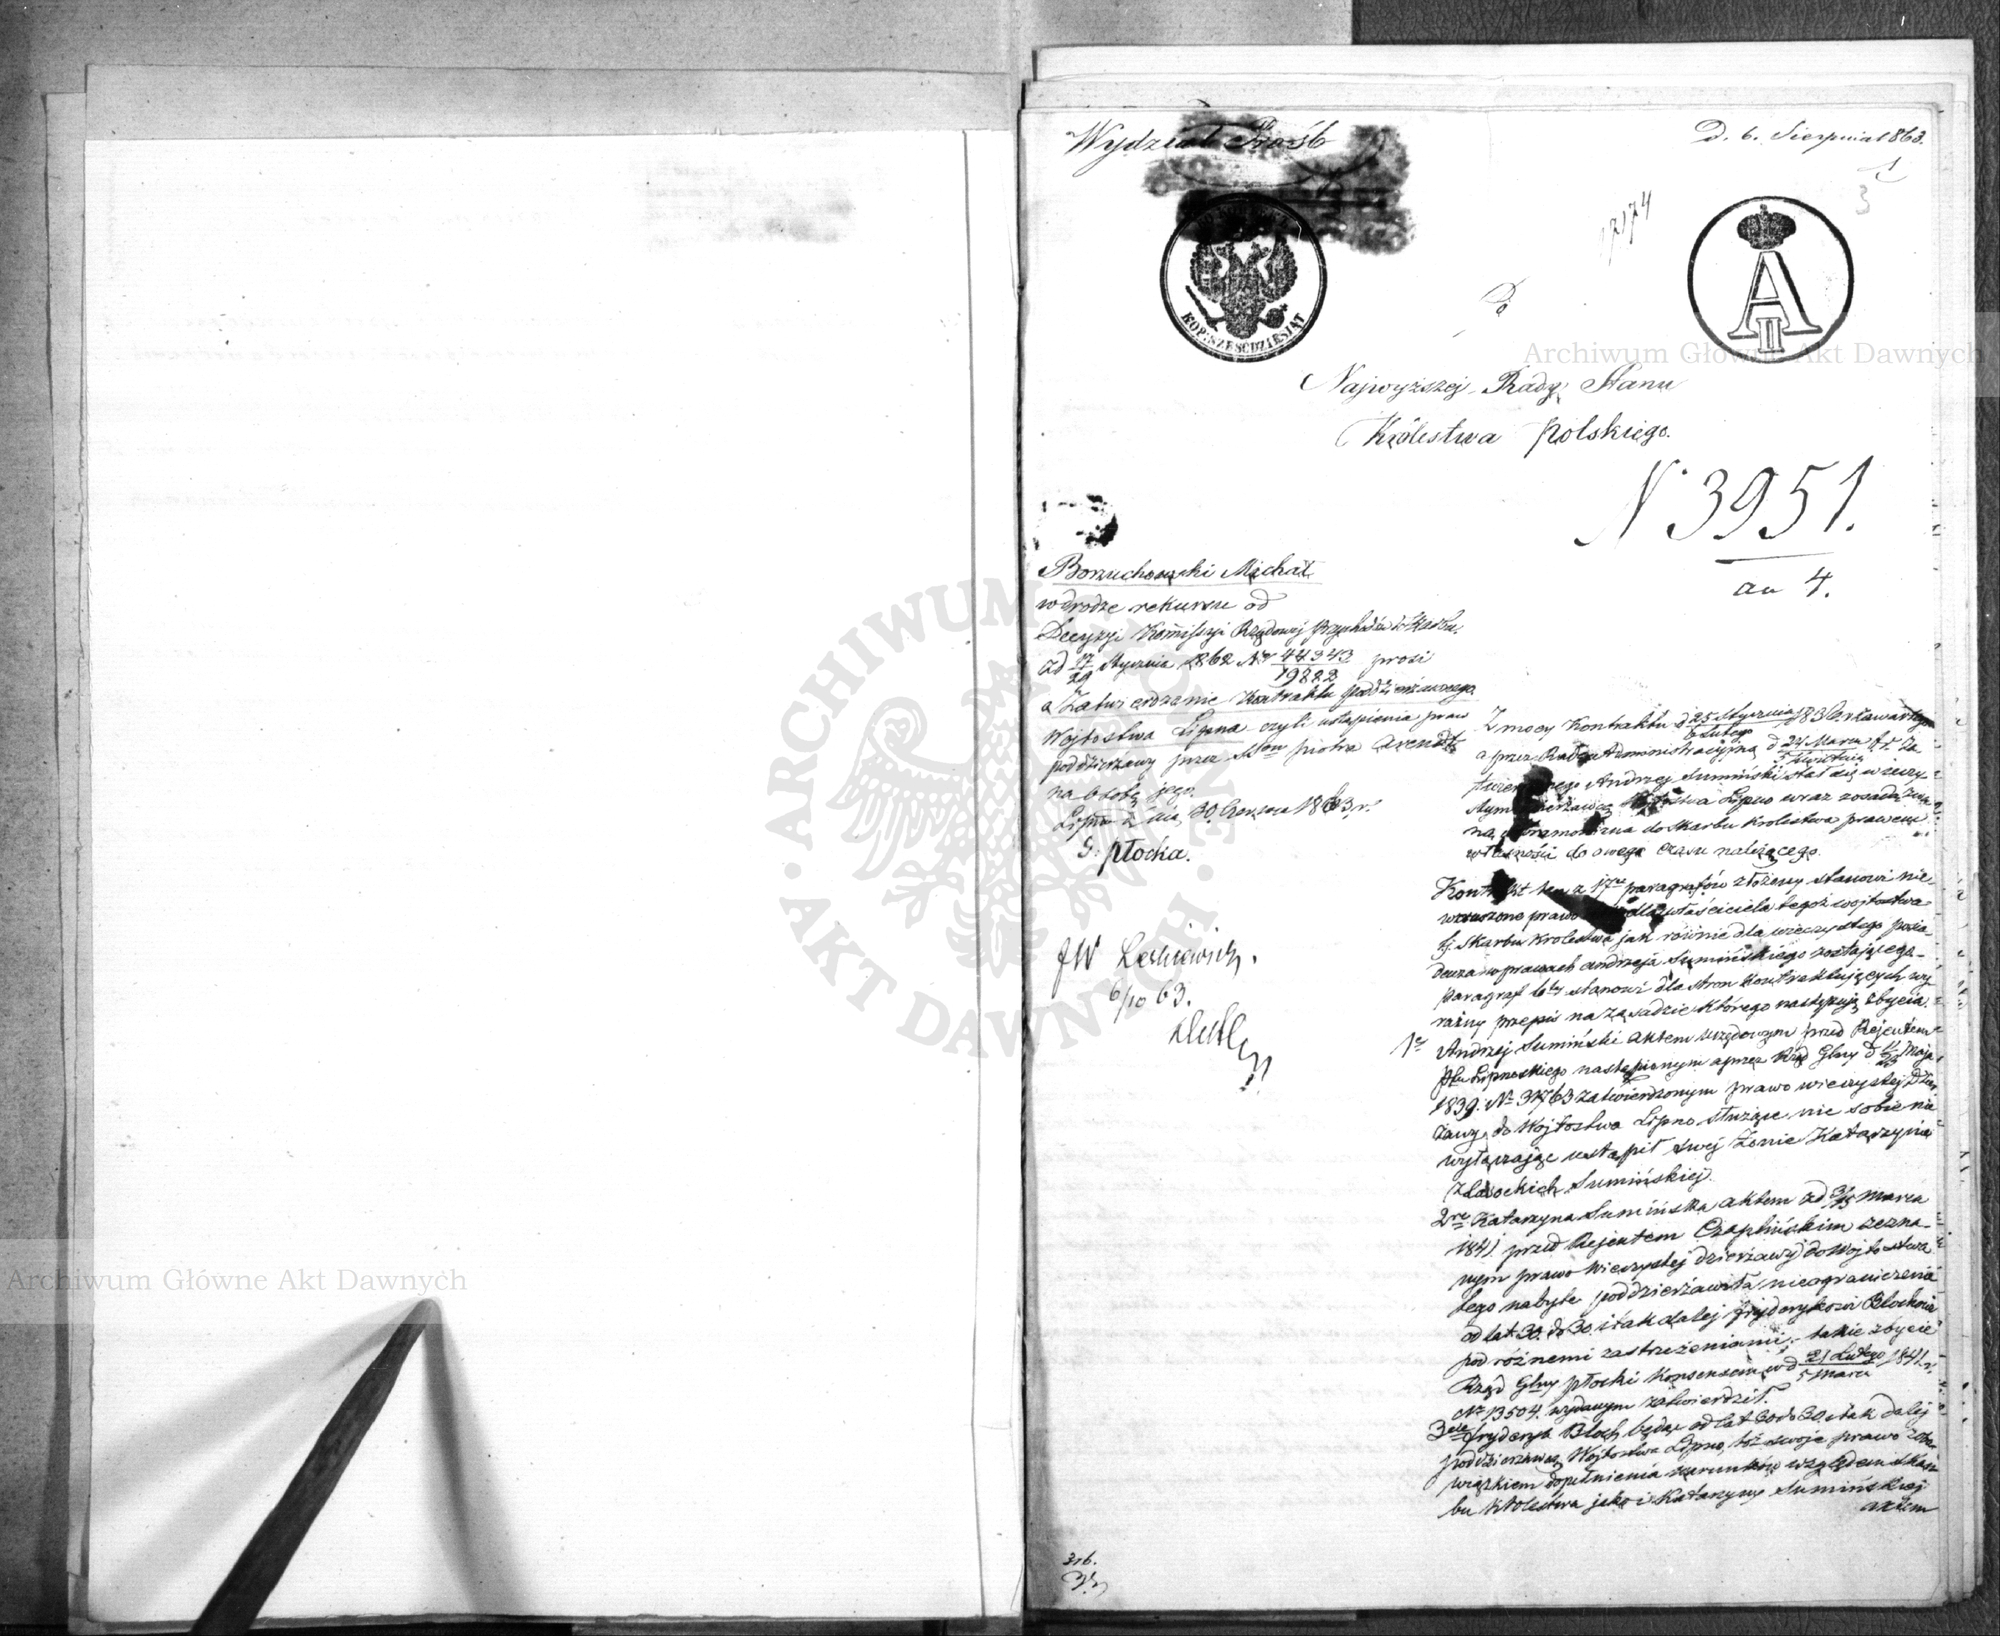 Wydział Próśb
D. 6. Sierpnia 1863.
1
3
17174
KOP: SZEŚĆDZIESIĄT
A II
Do
Najwyższej Rady Stanu
Królestwa Polskiego.
N 3951.
au 4.
Borzuchowski Michał
w drodze rekursu od
Decyzyi Kommissyi Rządowej Przychodów i Skarbu
od 17/29 Stycznia 1862 Nr 44343/19822 prosi
o Zatwierdzenie Kontraktu poddzierżawnego
Wójtostwa Lipna czyli ustąpienia praw
poddzierżawy przez Piotra Arendt
na osobę jego.
Lipno dnia 30 Czerwca 1863 r.
G. Płocka.
JW Leskiewicz.
6/10 63.
Z mocy Kontraktu d 25 Stycznia/6 Lutego 183 zawartego
a przez Radę Administracyjną d 24 Marca/5 Kwietnia t. r. za
twierdzonego Andrzej Sumiński stał się wieczy
stym dzierżawcą Wójtostwa Lipno wraz z osadą
na do Skarbu Królestwa prawem
własności do owego czasu należącego.
Kontrakt ten z 17tu paragrafów złożony stanowi nie-
wzruszone prawo dla właściciela tegoż wójtostwa
tj. Skarbu Królestwa jak równie dla wieczystego posia-
dacza w prawach Andrzeja Sumińskiego zostającego-
Paragraf 6ty stanowi dla stron kontraktujących wy
raźny przepis na zasadzie którego następują zbycia.
1e Andrzej Sumiński aktem urzędowym przed Rejentem
Ptu Lipnoskiego nastąpionym a przez Rząd Gbny d 11/23 Maja
1839. Nr 31763 zatwierdzonym prawo wieczystej Dzier
żawy do Wójtostwa Lipno służące nic sobie nie
wyłączając ustąpił swej Żonie Katarzynie
z Sumińskiej.
2re Katarzyna Sumińska aktem od 3/15 Marca
1841 przed Rejentem Czaplińskim zezna-
nym prawo wieczystej dzierżawy do Wójtostwa
tego nabyte poddzierżawiła nieograniczenie
od lat 30. do 30. i tak dalej Fryderykowi Blochowi
pod różnemi zastrzeżeniami, - takie zbycie
Rząd Gbny Płocki Konsensem w d 21 Lutego/5 Marca 1841 r.
Nr 13504. wydanym zatwierdził.
3cie Fryderyk Bloch będąc od lat 30 do 30. i tak dalej
poddzierżawcą Wójtostwa Lipno, też swoje prawo z obo
wiązkiem dopełnienia warunków względem Skar
bu Królestwa jako i Katarzyny Sumińskiej
aktem
316.
Archiwum Główne Akt Dawnych
Archiwum Główne Akt Dawnych
ARCHIWUM GŁÓWNE AKT DAWNYCH